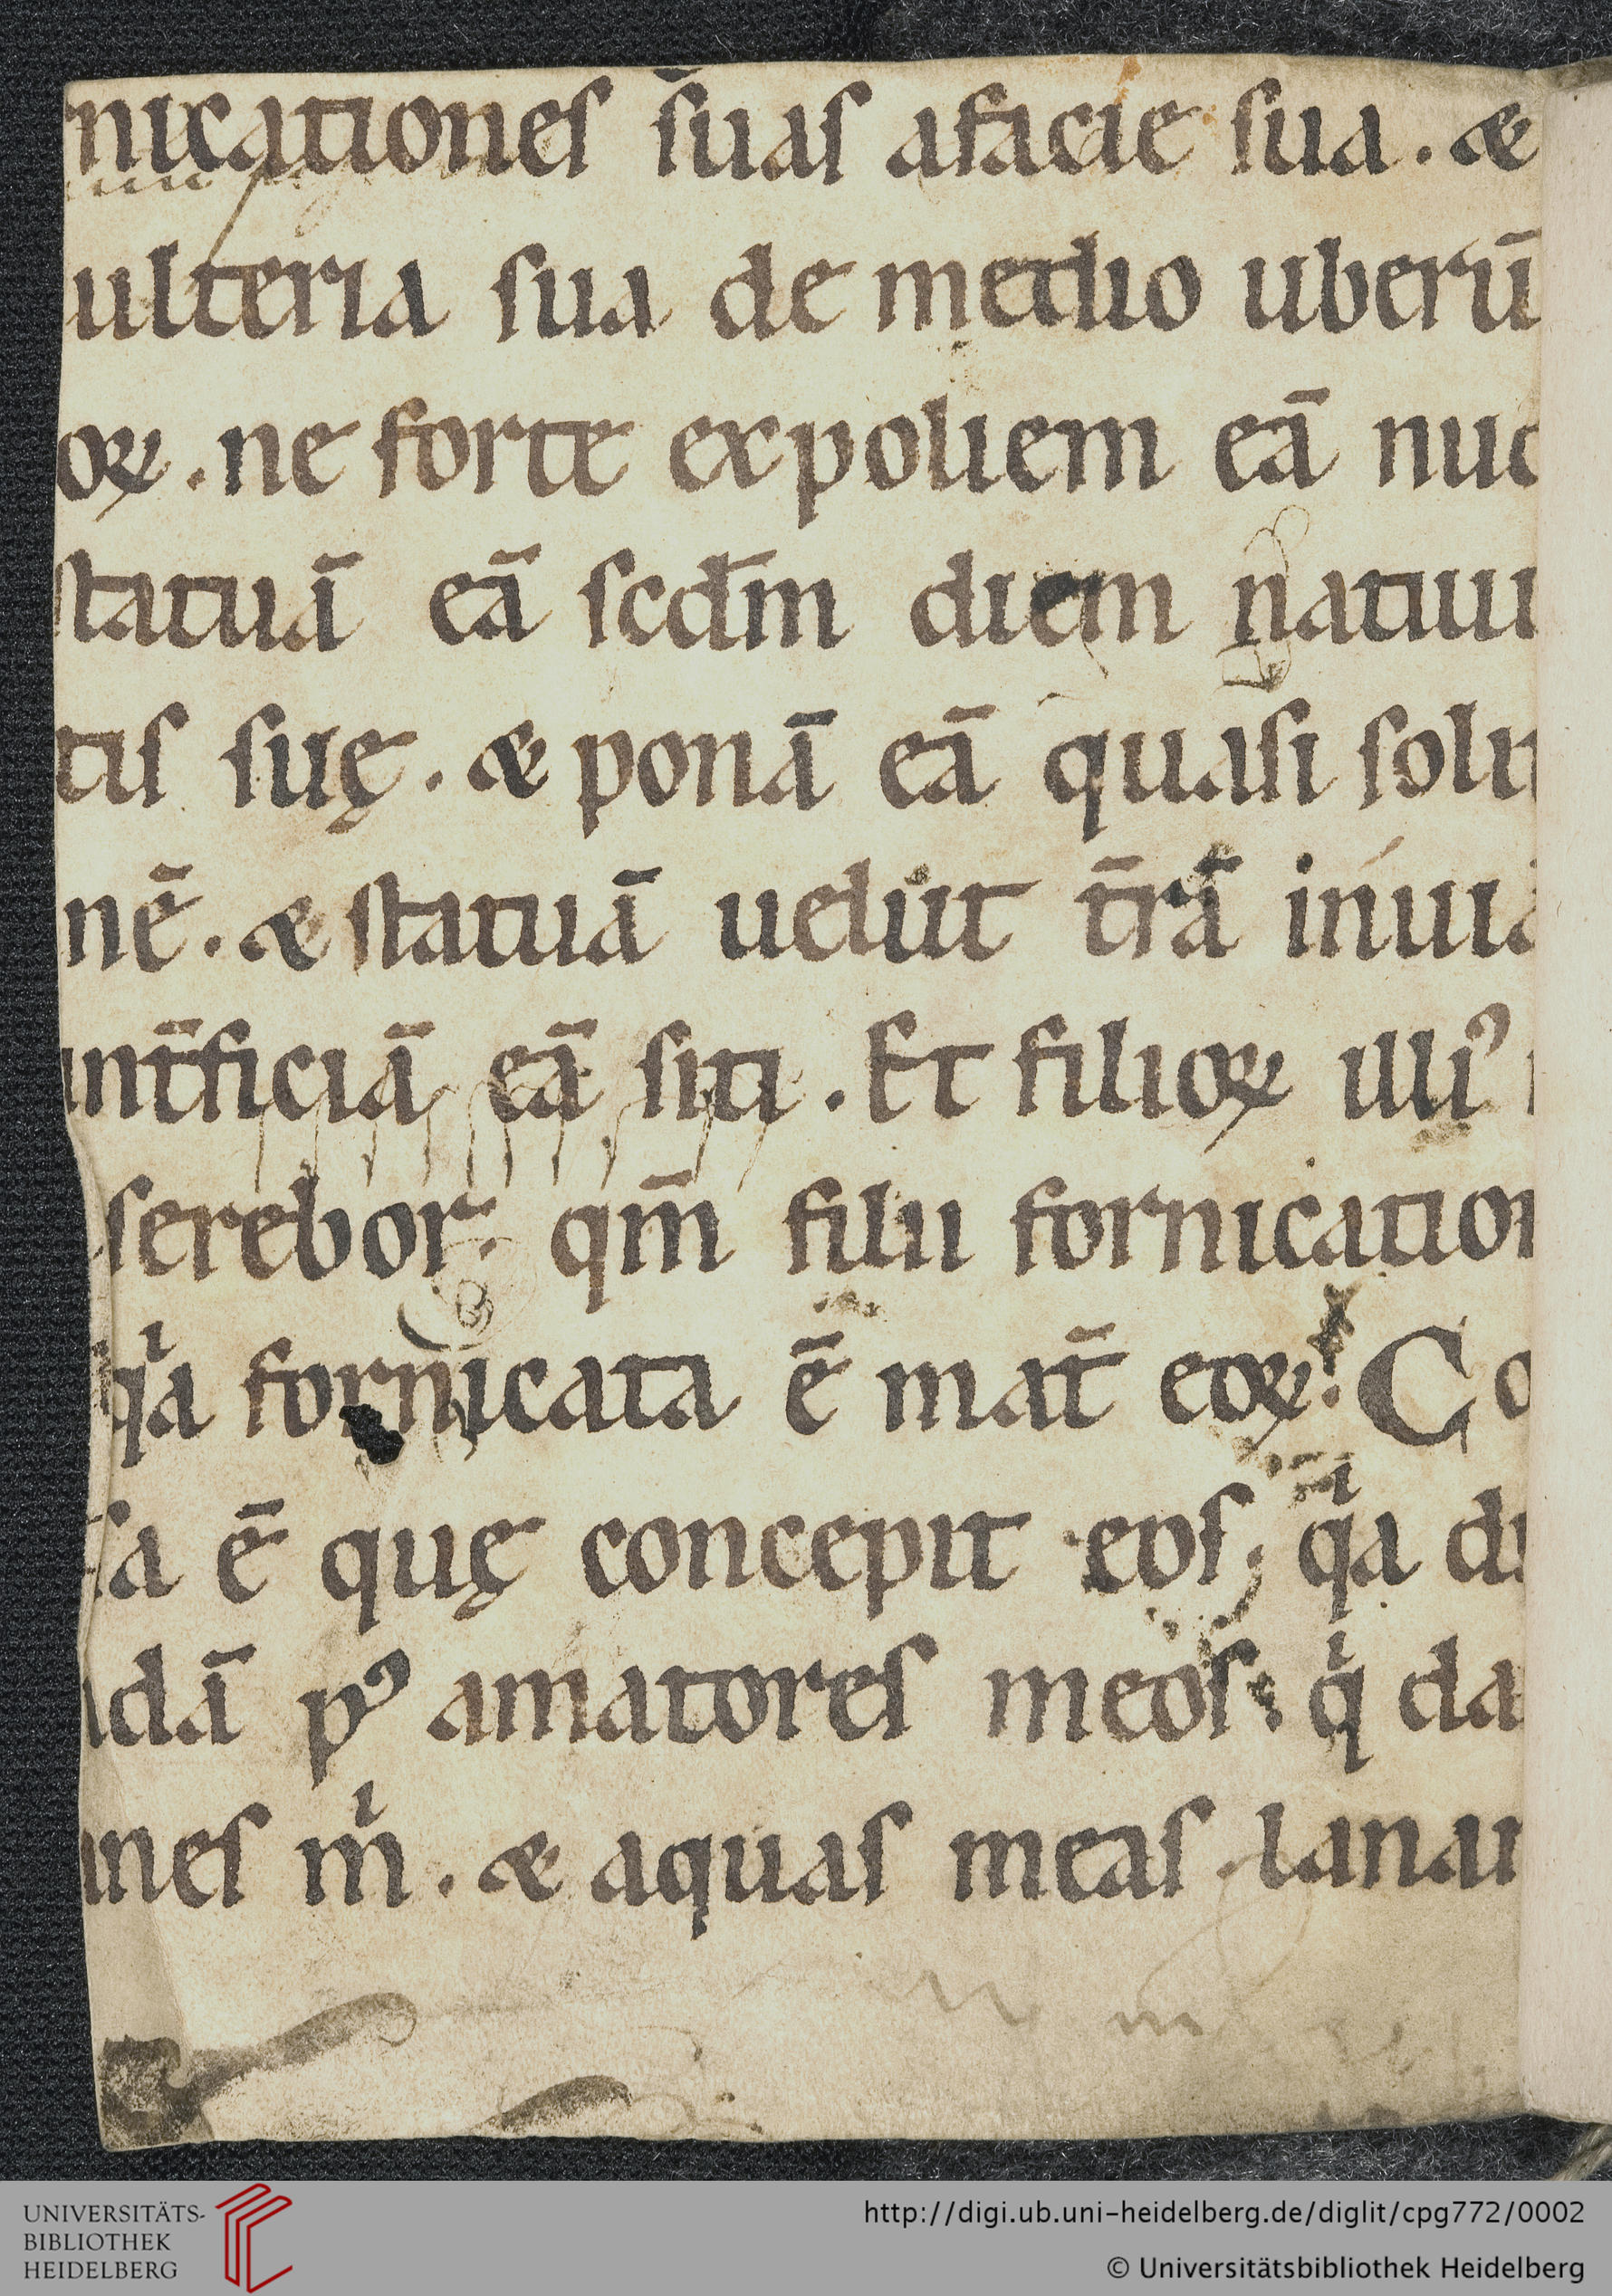 nicationes suas afacie sua . &
ulteria sua de medio uberū
oꝝ . ne forte expoliem eā nud
statuā eā scdm̄ diem natiui
tis suę . & ponā eā quasi solit
nē . & statuā uelut t̄rā inuiā
int̄ficiā eā siti . Et filioꝝ illiꝰ
serebor . qm̄ filii fornication
qͥa fornicata ē mat̄ eoꝝ . Co
sa ē quę concepit eos ; qͥa di
adā pꝰ amatores meos . qͥ da
anes mͥ . & aquas meas . lanam
UNIVERSITÄTS-
BIBLIOTHEK
HEIDELBERG
http://digi.ub.uni-heidelberg.de/diglit/cpg772/0002
© Universitätsbibliothek Heidelberg